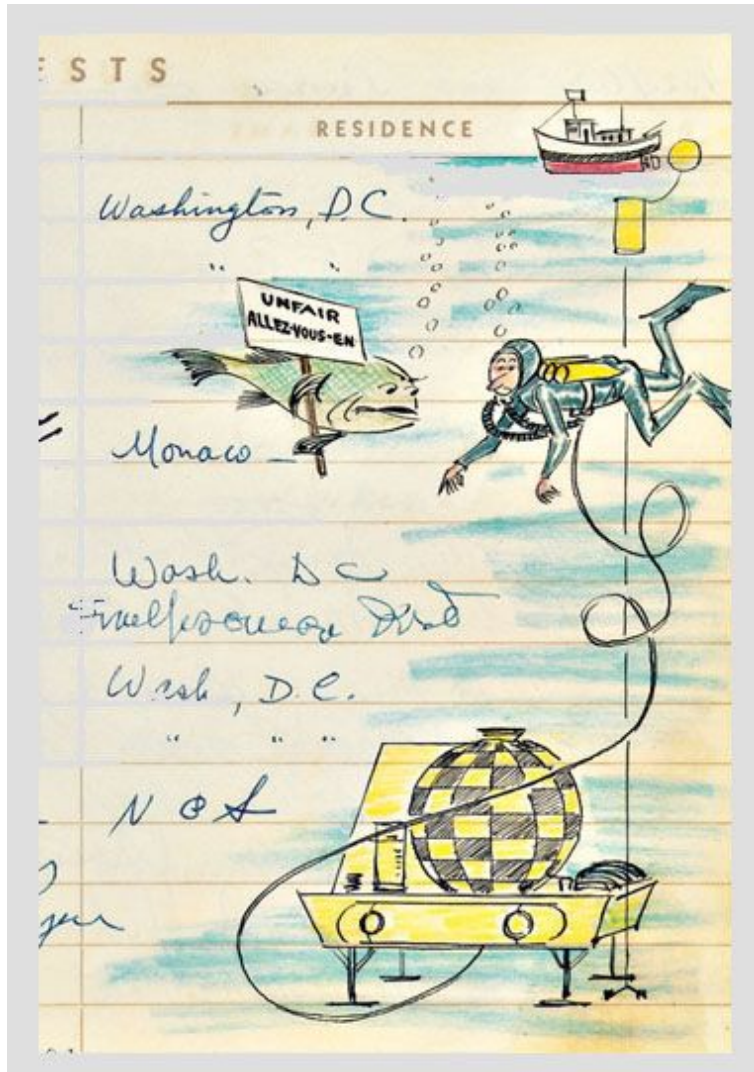 ESTS
RESIDENCE
Washington, D.C.
" "
UNFAIR
ALLEZ-VOUS-EN
Monaco —
Wash. DC
Wash, D.C.
" " "